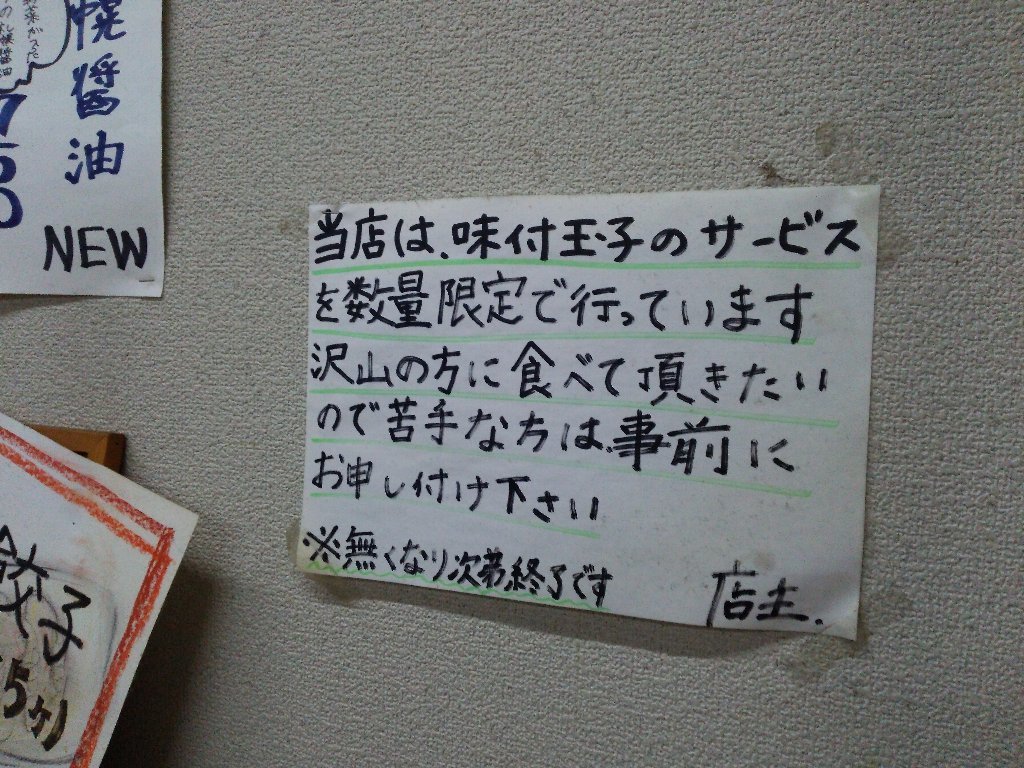 幌醤油
NEW
当店は、味付玉子のサービス
を数量限定で行っています
沢山の方に食べて頂きたい
ので苦手な方は、事前に
お申し付け下さい
※無くなり次第終了です
店主.
餃子
5ケ